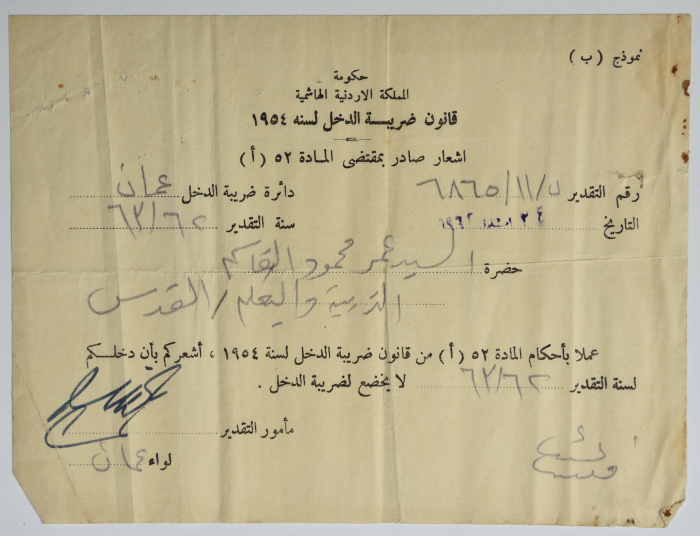 نموذج ( ب )
حكومة
المملكة الاردنية الهاشمية
قانون ضريبة الدخل لسنه ١٩٥٤
اشعار صادر بمقتضى المادة ٥٢ ( أ )
رقم التقدير ٦٨٦٥/١١/ دائرة ضريبة الدخل عمان
التاريخ ٢٤ ١٩٦٢ سنة التقدير ٦٣/٦٢
حضرة السيد عمر محمود القاسم
التربية والتعليم / القدس
عملا بأحكام المادة ٥٢ ( أ ) من قانون ضريبة الدخل لسنة ١٩٥٤ ، أشعركم بأن دخلكم
لسنة التقدير ٦٣/٦٢ لا يخضع لضريبة الدخل .
مأمور التقدير
لواء عمان